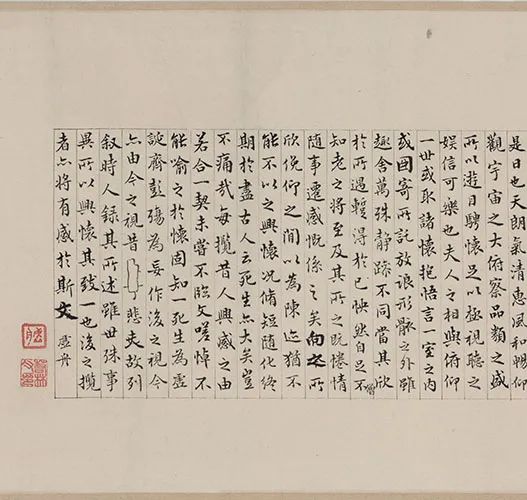 是日也天朗氣清惠風和暢仰
觀宇宙之大俯察品類之盛
所以遊目騁懷足以極視聽之
娛信可樂也夫人之相與俯仰
一世或取諸懷抱悟言一室之內
或因寄所託放浪形骸之外雖
趣舍萬殊靜躁不同當其欣
於所遇蹔得於己怏然自足不
僧
知老之將至及其所之既惓情
隨事遷感慨係之矣向之所
欣俛仰之間以為陳迹猶不
能不以之興懷況脩短隨化終
期於盡古人云死生亦大矣豈
不痛哉每攬昔人興感之由
若合一契未嘗不臨文嗟悼不
能喻之於懷固知一死生為虛
誕齊彭殤為妄作後之視今
亦由今之視昔悲夫故列
敘時人錄其所述雖世殊事
異所以興懷其致一也後之攬
者亦將有感於斯文